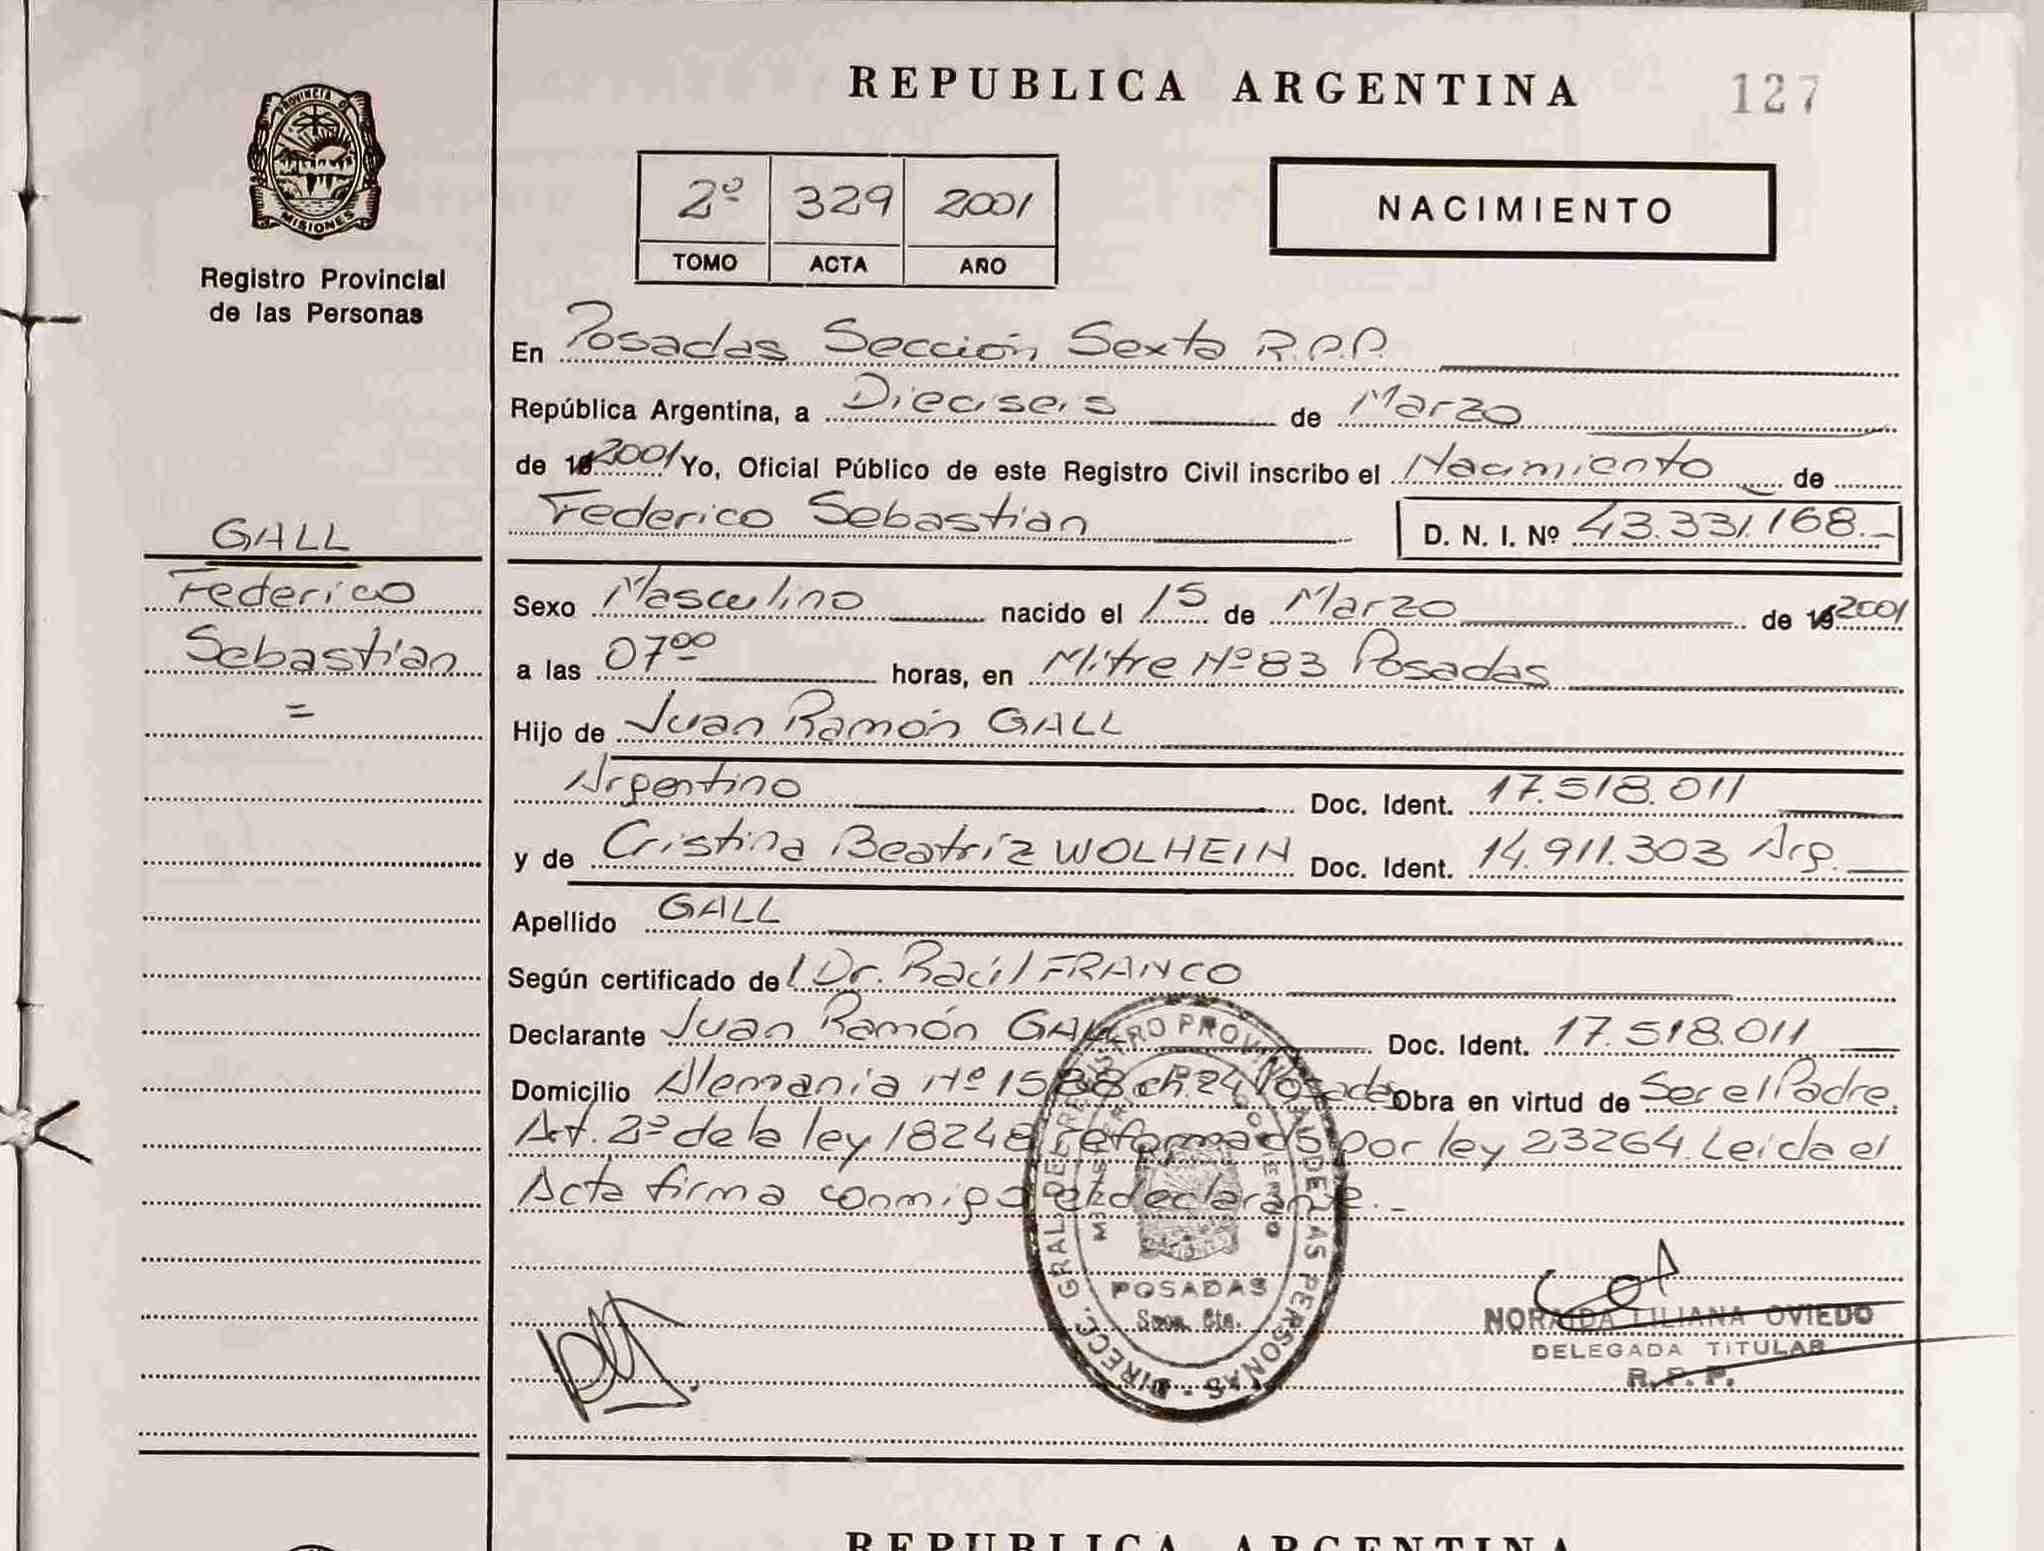 REPUBLICA ARGENTINA
127
PROVINCIA D
MISIONES
Registro Provincial
de las Personas
2º 329 2001
TOMO ACTA AÑO
NACIMIENTO
En Posadas Sección Sexta R.P.P.
República Argentina, a Dieciseis de Marzo
de 2001 Yo, Oficial Público de este Registro Civil inscribo el Nacimiento de
Federico Sebastián D. N. I. Nº 43.331.168.-
GALL
Federico
Sebastián
=
Sexo Masculino nacido el 15 de Marzo de 2001
a las 07ºº horas, en Mitre Nº 83 Posadas
Hijo de Juan Ramón GALL
Argentino Doc. Ident. 17.518.011
y de Cristina Beatríz WOLHEIN Doc. Ident. 14.911.303 Arg.
Apellido GALL
Según certificado de l Dr. Raúl FRANCO
Declarante Juan Ramón GALL Doc. Ident. 17.518.011
Domicilio Alemania Nº 1588 ch. 24 Posadas Obra en virtud de Ser el Padre.
Art. 2º de la ley 18248 reformado por ley 23264. Leida el
Acta firma conmigo el declarante.-
DIRECC. GRAL. DEL REGISTRO PROVINCIAL DE LAS PERSONAS
POSADAS
Secc. 6ta.
NORAIDA LILIANA OVIEDO
DELEGADA TITULAR
R. P. P.
REPUBLICA ARGENTINA